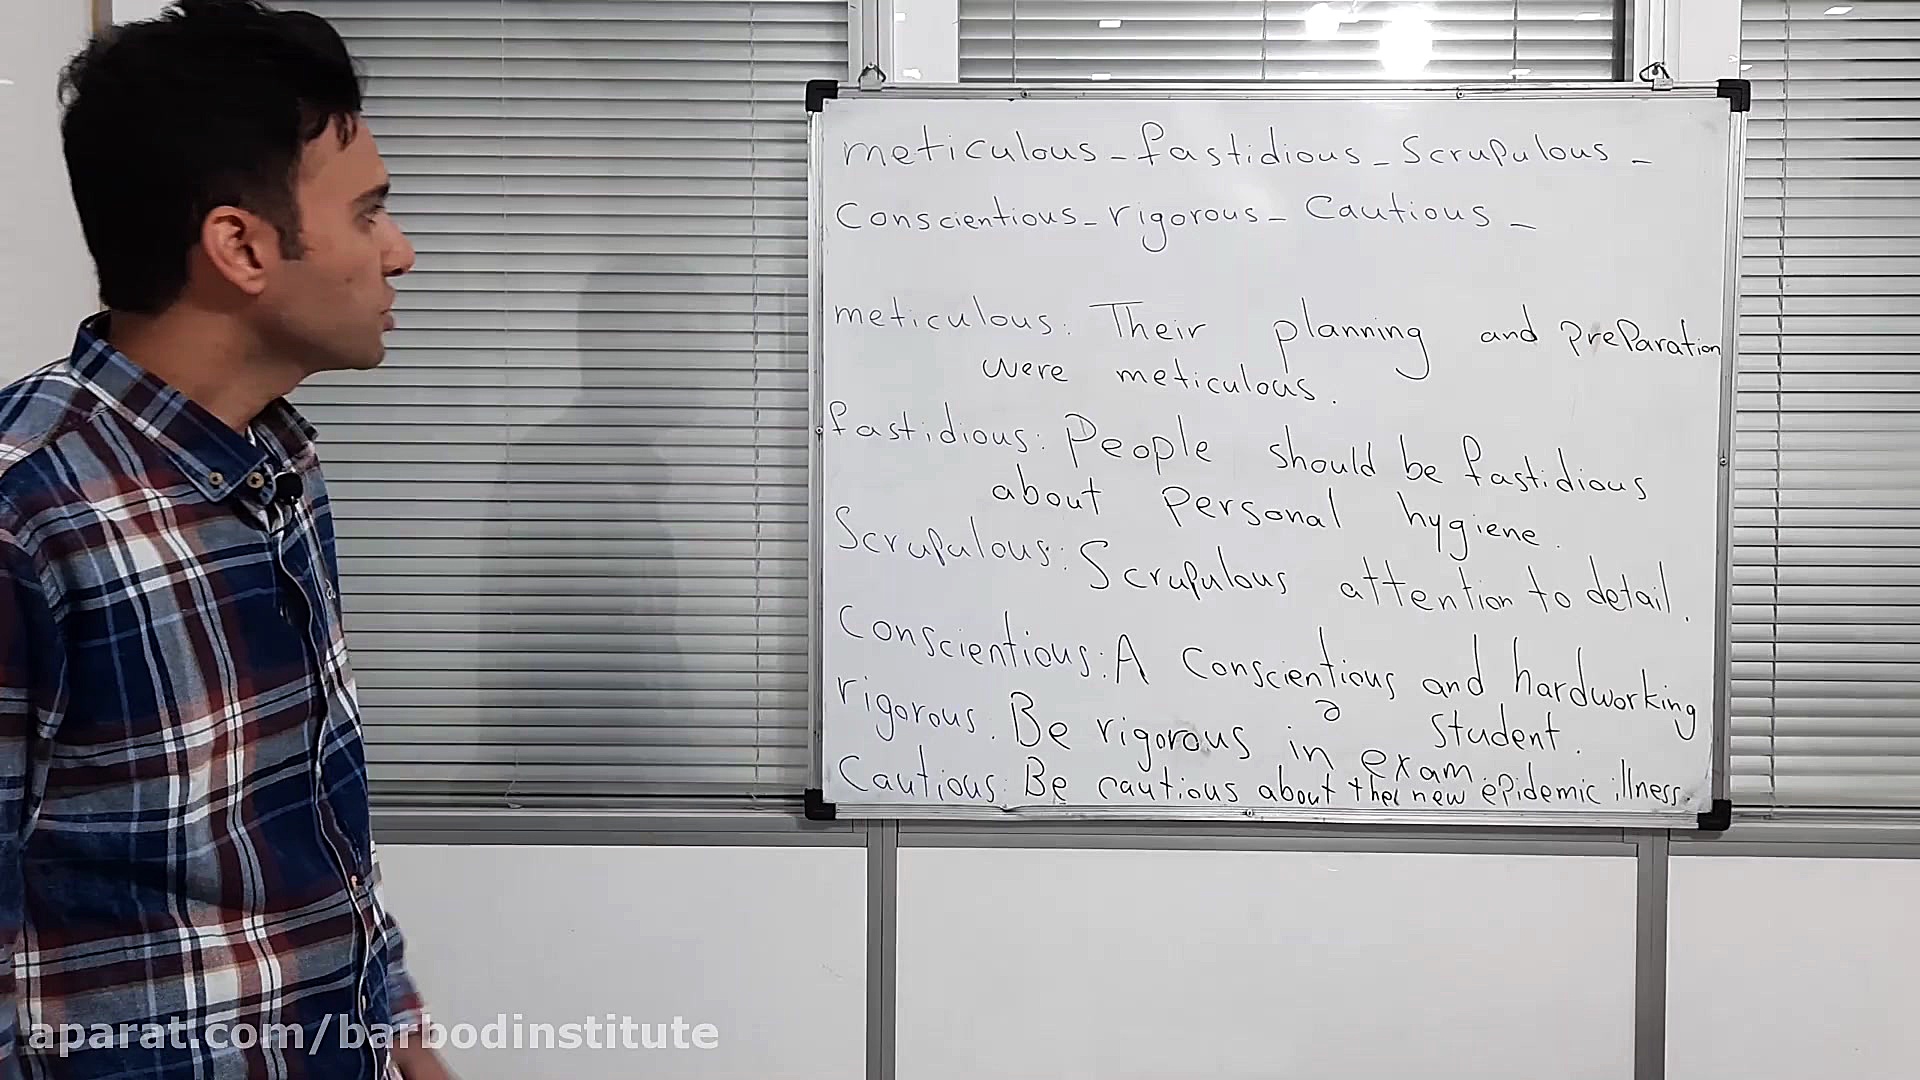 meticulous - fastidious - Scrupulous -
Conscientious - rigorous - Cautious -
meticulous: Their planning and preparation
were meticulous.
fastidious: People should be fastidious
about personal hygiene.
Scrupulous: Scrupulous attention to detail.
Conscientious: A conscientious and hardworking
student.
rigorous. Be rigorous in exam.
Cautious: Be cautious about the new epidemic illness.
aparat.com/barbodinstitute